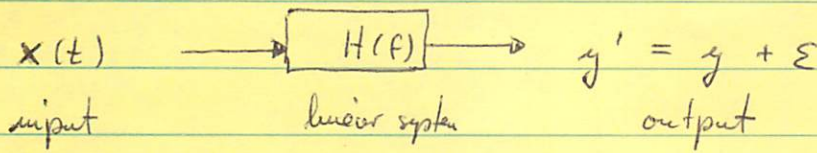 x(t) H(f) y' = y + ε
input linear system output